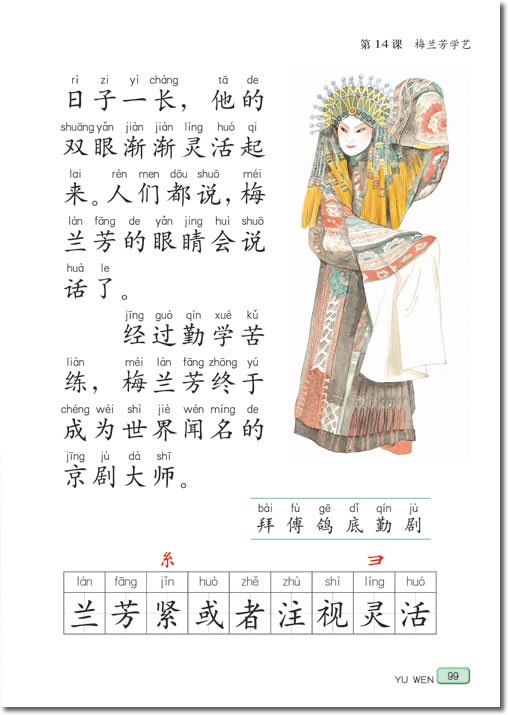 第14课 梅兰芳学艺
rì zi yì cháng tā de
日子一长，他的
shuāng yǎn jiàn jiàn líng huó qi
双眼渐渐灵活起
lai rén men dōu shuō méi
来。人们都说，梅
lán fāng de yǎn jing huì shuō
兰芳的眼睛会说
huà le
话了。
jīng guò qín xué kǔ
经过勤学苦
liàn méi lán fāng zhōng yú
练，梅兰芳终于
chéng wéi shì jiè wén míng de
成为世界闻名的
jīng jù dà shī
京剧大师。
bài fù gē dǐ qín jù
拜傅鸽底勤剧
糹 彐
lán fāng jǐn huò zhě zhù shì líng huó
兰芳紧或者注视灵活
YU WEN 99